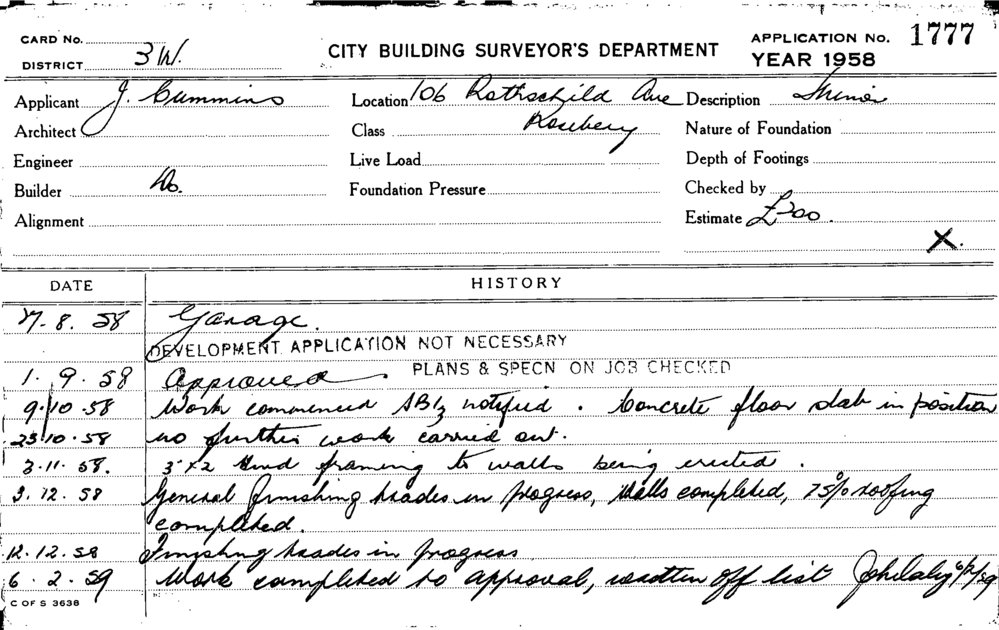 CARD No. APPLICATION No. 1777
DISTRICT 3W. CITY BUILDING SURVEYOR'S DEPARTMENT YEAR 1958
Applicant J. Cummins Location 106 Rothschild Ave Description Minor
Architect Class Rosebery Nature of Foundation
Engineer Live Load Depth of Footings
Builder Do. Foundation Pressure Checked by
Alignment Estimate £200.
X.
DATE HISTORY
27.8.58 Garage.
DEVELOPMENT APPLICATION NOT NECESSARY
1.9.58 Approved. PLANS & SPECN ON JOB CHECKED
9.10.58 Work commenced notified. Concrete floor slab in position
23.10.58 no further work carried out.
3.11.58. 3"x2 framing to walls being erected.
3.12.58 General finishing trades in progress, Walls completed, 75% roofing
completed.
12.12.58 Finishing trades in progress
6.2.59 Work completed to approval, written off list 6/2/59
C OF S 3638